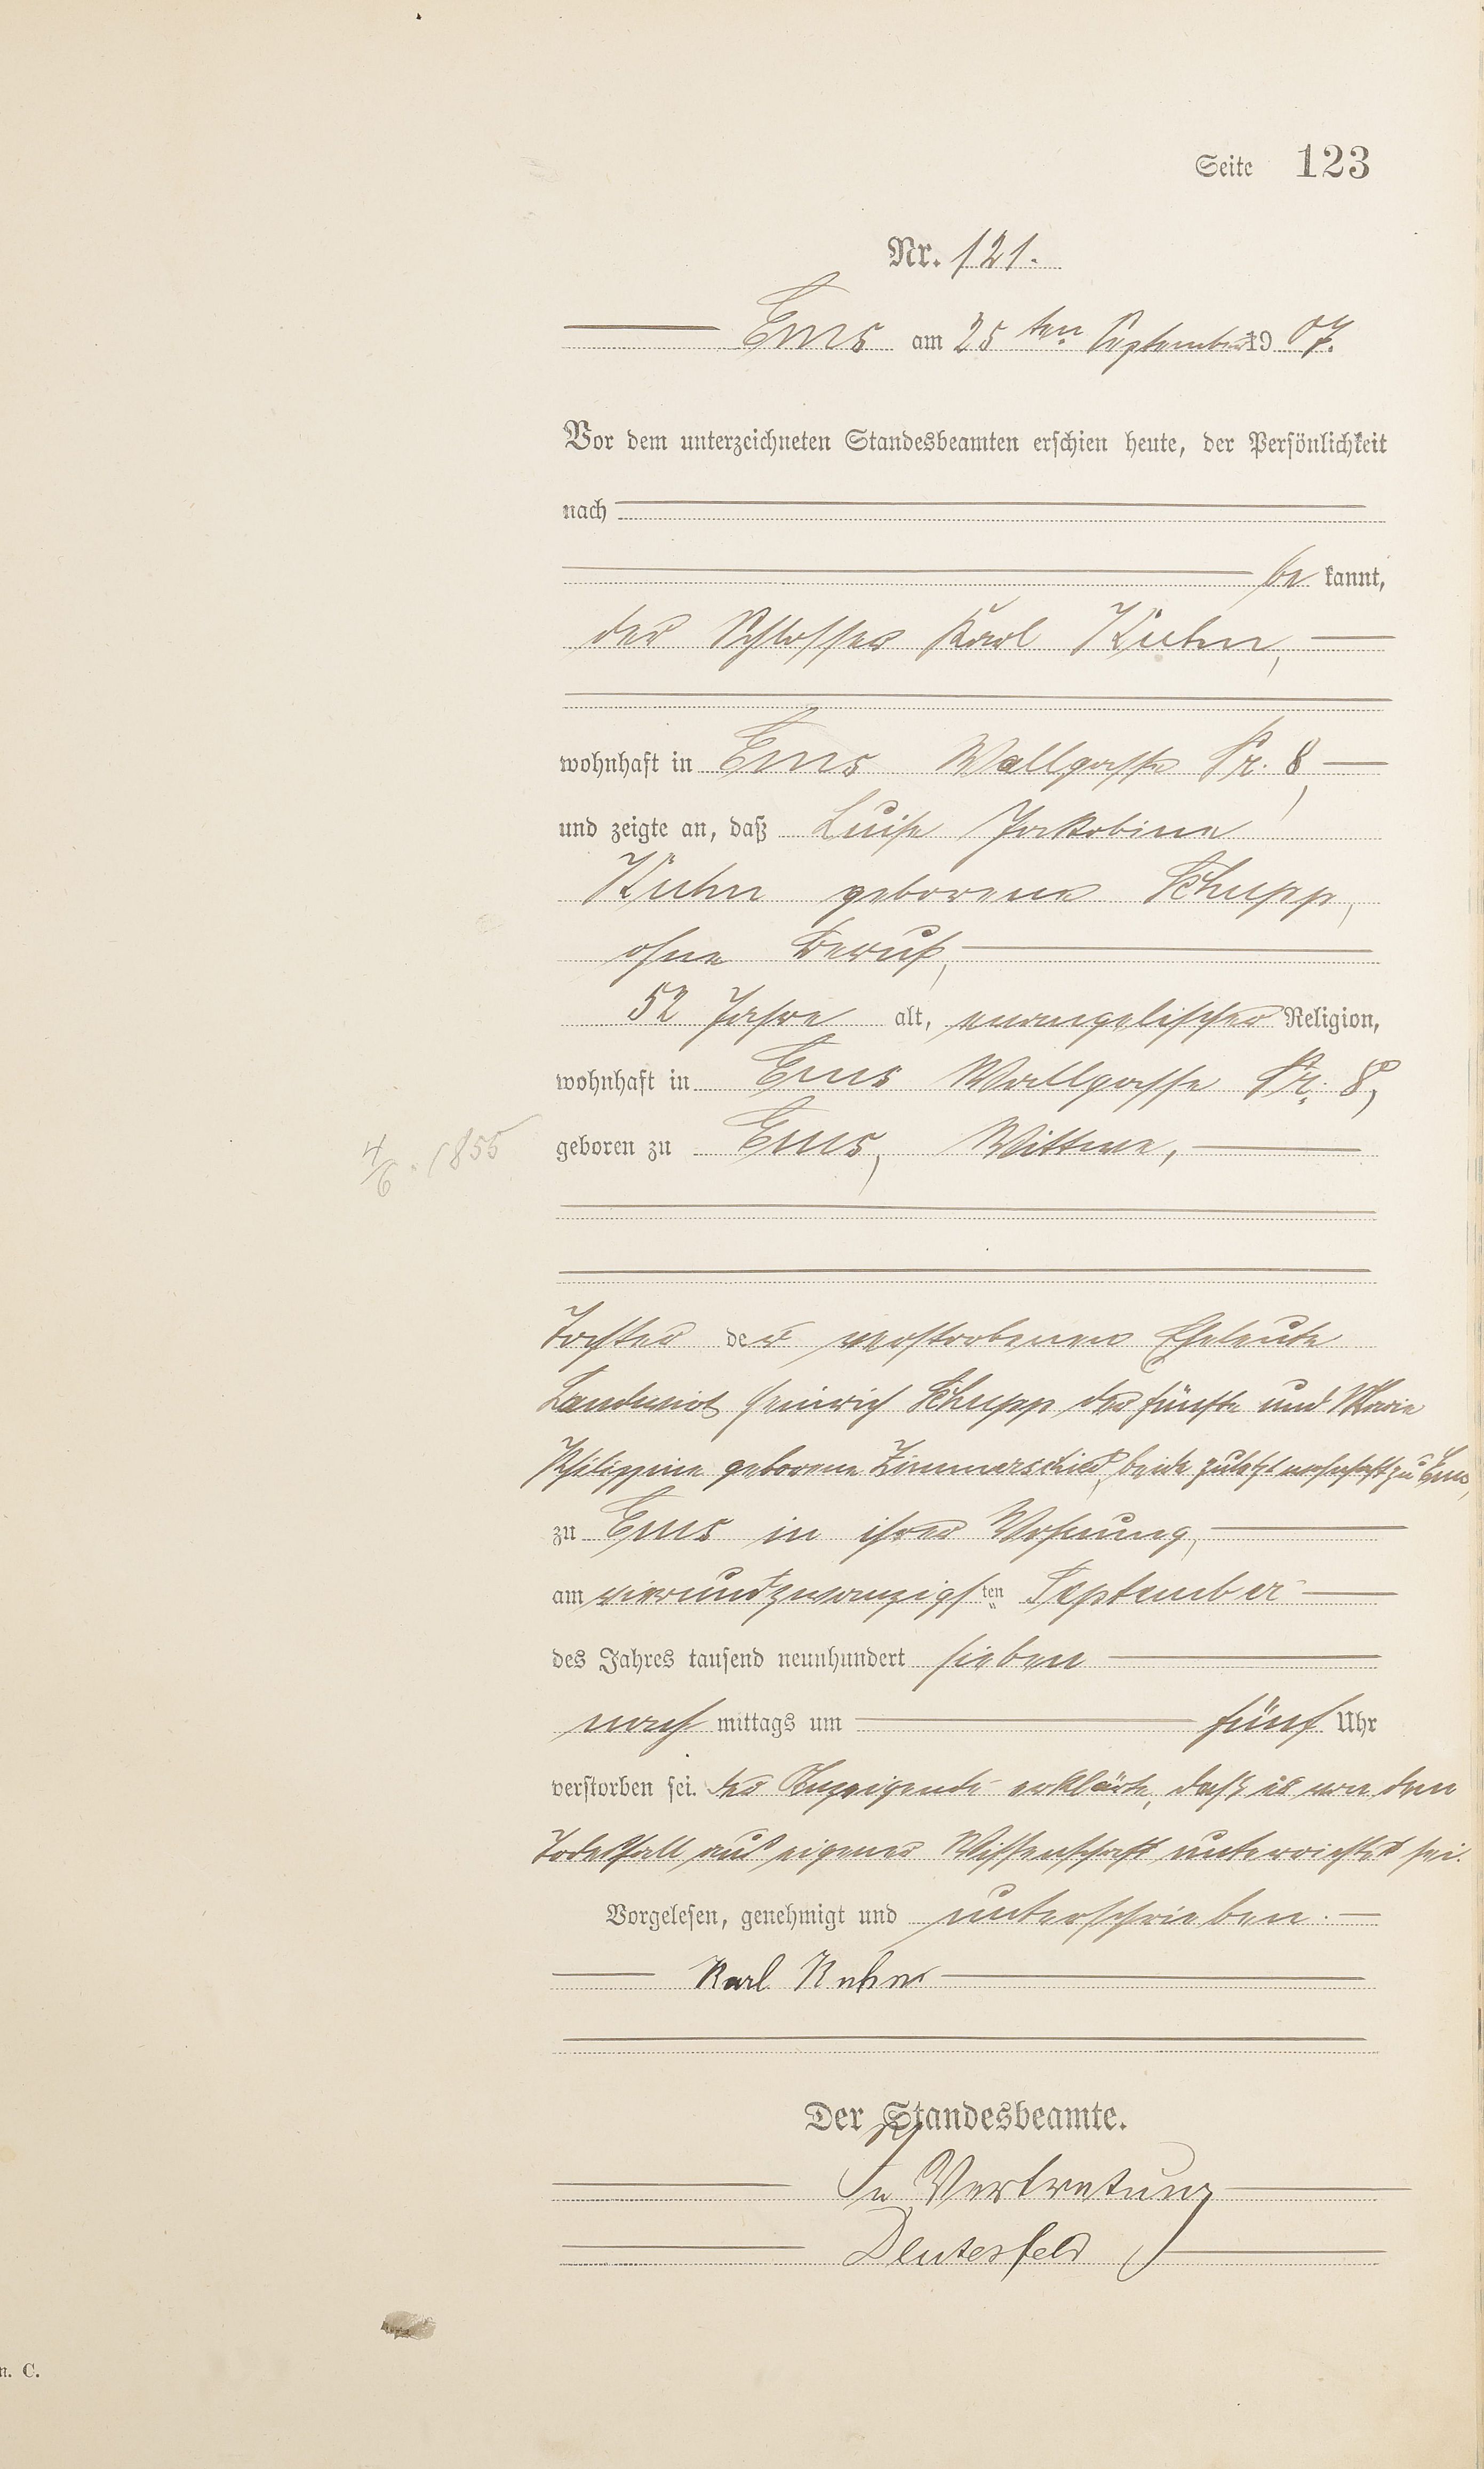 Seite 123
Nr. 121.
Ems am 25ten September 1907.
Vor dem unterzeichneten Standesbeamten erschien heute, der Persönlichkeit
nach
be kannt,
der Schlosser Karl Kuhn,
wohnhaft in Ems Wallgasse Nr. 8,
und zeigte an, daß Luise Jakobine
Kuhn geborene Schupp,
ohne Beruf,
52 Jahre alt, evangelischer Religion,
wohnhaft in Ems Wallgasse Nr. 8,
4/6. 1855
geboren zu Ems, Wittwe,
Tochter der verstorbenen Eheleute
Landwirt Heinrich Schupp der fünfte und Marie
Philippine geborene Zimmerschied, beide zuletzt wohnhaft zu Ems,
zu Ems in ihrer Wohnung,
am vierundzwanzigsten September
des Jahres tausend neunhundert sieben
nach mittags um fünf Uhr
verstorben sei. Der Anzeigende erklärte, daß er von dem
Todesfall aus eigener Wissenschaft unterrichtet sei.
Vorgelesen, genehmigt und unterschrieben.
Karl Kuhn
Der Standesbeamte.
In Vertretung
n. C.